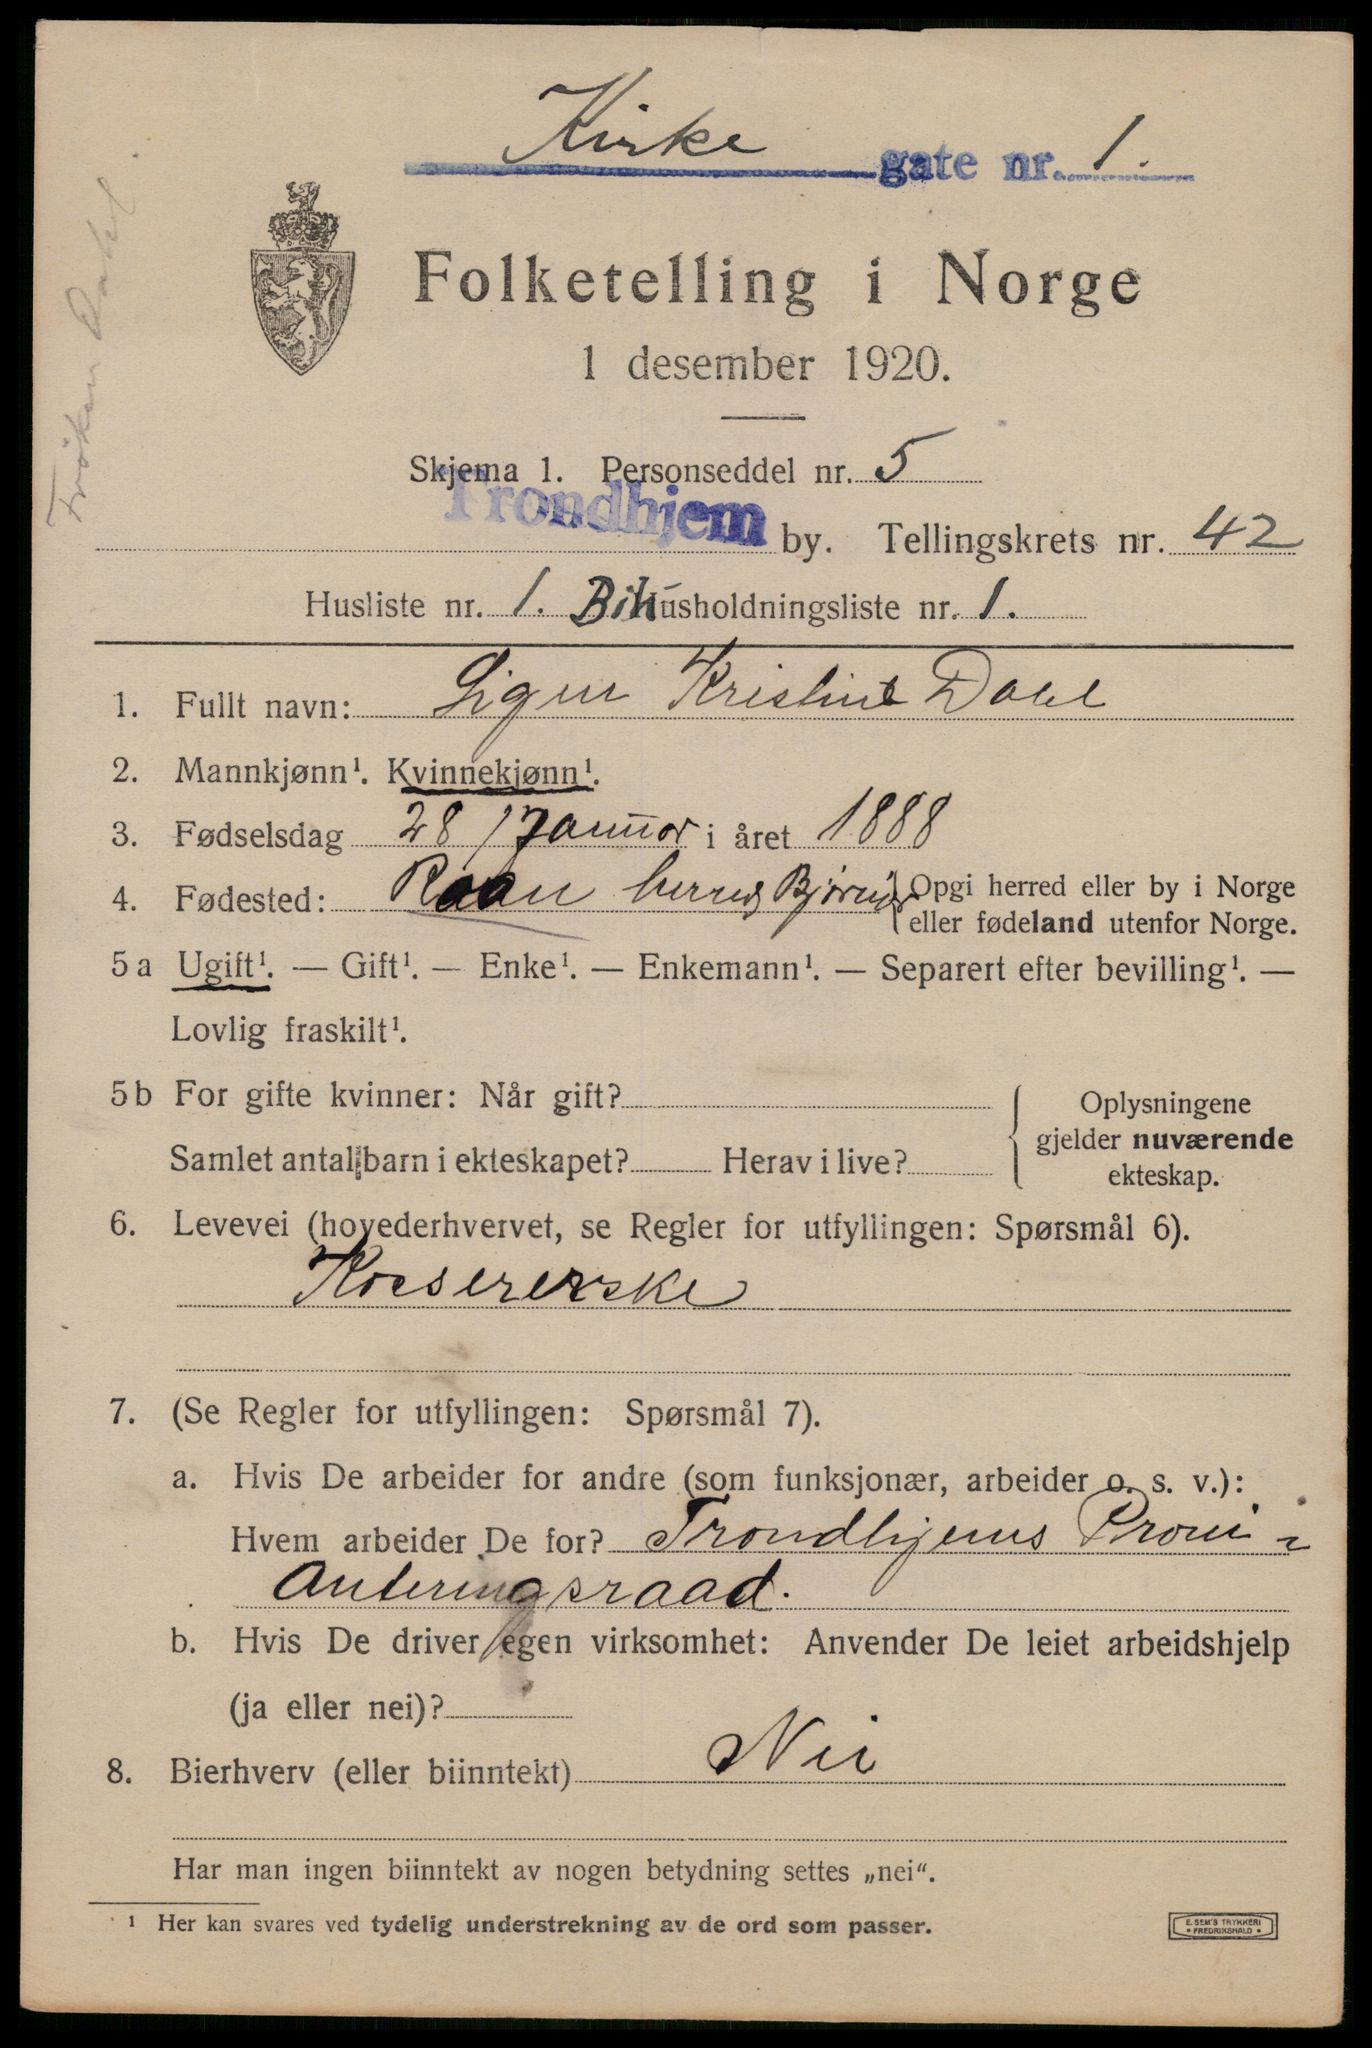 Kirke gate nr. 1.
Frøken Dahl
Folketelling i Norge
1 desember 1920.
Skjema 1. Personseddel nr. 5
Trondhjem by. Tellingskrets nr. 42
Husliste nr. 1. Bihusholdningsliste nr. 1.
1. Fullt navn: Kristine Dahl
2. Mannkjønn¹. Kvinnekjønn¹.
3. Fødselsdag 28 / Januar i året 1888
4. Fødested: Roan herred Bjørnør { Opgi herred eller by i Norge
eller fødeland utenfor Norge.
5 a Ugift¹. — Gift¹. — Enke¹. — Enkemann¹. — Separert efter bevilling¹. —
Lovlig fraskilt¹.
5 b For gifte kvinner: Når gift?
Samlet antal barn i ekteskapet? Herav i live?
{ Oplysningene
gjelder nuværende
ekteskap.
6. Levevei (hovederhvervet, se Regler for utfyllingen: Spørsmål 6).
Kassererske
7. (Se Regler for utfyllingen: Spørsmål 7).
a. Hvis De arbeider for andre (som funksjonær, arbeider o. s. v.):
Hvem arbeider De for? Trondhjems Provi-
anteringsraad.
b. Hvis De driver egen virksomhet: Anvender De leiet arbeidshjelp
(ja eller nei)?
8. Bierhverv (eller biinntekt) Nei
Har man ingen biinntekt av nogen betydning settes „nei“.
¹ Her kan svares ved tydelig understrekning av de ord som passer.
E. SEM'S TRYKKERI
• FREDRIKSHALD •